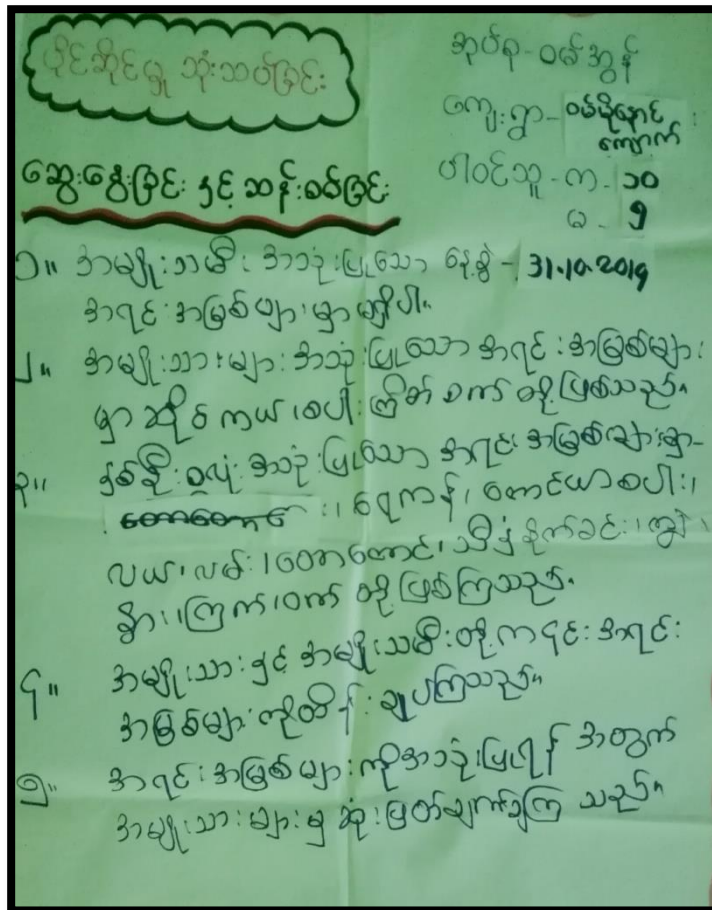 ပိုင်ဆိုင်မှု သုံးသပ်ခြင်း
အုပ်စု - ဝမ်အွန်
ကျေးရွာ - ဝမ်မိုနောင်
ကျောက်
ပါဝင်သူ - က - ၁၀
မ - ၅
ဆွေးနွေးခြင်း နှင့် ဆန်းစစ်ခြင်း
၁။ အမျိုးသမီး အသုံးပြုသော နေ့စွဲ - 31.10.2019
အရင်းအမြစ်များမှာ မရှိပါ။
၂။ အမျိုးသားများ အသုံးပြုသော အရင်းအမြစ်များ
မှာ ဆိုင်ကယ်၊ စပါးကြိတ်စက် တို့ဖြစ်သည်။
၃။ နှစ်ဦးစလုံး အသုံးပြုသော အရင်းအမြစ်များမှာ-
၊ ရေကန်၊ တောင်ယာစပါး၊
လယ်၊ လမ်း၊ တောတောင်၊ သီးနှံစိုက်ခင်း၊ ကျွဲ၊
နွား၊ ကြက်၊ ဝက် တို့ဖြစ်ကြသည်။
၄။ အမျိုးသား နှင့် အမျိုးသမီးတို့ကရင်း အရင်း
အမြစ်များကိုထိန်းချုပ်ကြသည်။
၅။ အရင်းအမြစ်များကိုအသုံးပြုရန် အတွက်
အမျိုးသားများမှ ဆုံးဖြတ်ချက်ချကြ သည်။